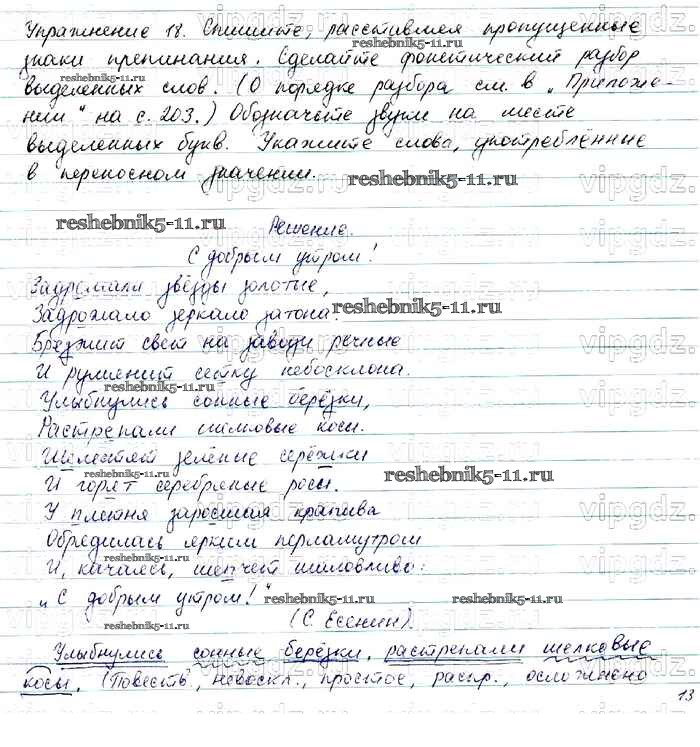 Упражнение 18. Спишите, расставляя пропущенные
знаки препинания. Сделайте фонетический разбор
выделенных слов. (О порядке разбора см. в „Приложе-
нии" на с. 203.) Обозначьте звуки на месте
выделенных букв. Укажите слова, употреблённые
в переносном значении.
Решение.
С добрым утром!
Задремали звёзды золотые,
Задрожало зеркало затона.
Брезжит свет на заводи речные
И румянит сетку небосклона.
Улыбнулись сонные берёзки,
Растрепали шёлковые косы.
Шелестят зелёные серёжки
И горят серебряные росы.
У плетня заросшая крапива
Обрядилась ярким перламутром
И, качаясь, шепчет шаловливо:
„С добрым утром!"
(С. Есенин).
Улыбнулись сонные берёзки, растрепали шелковые
косы. (Повеств., невоскл., простое, распр., осложнено
13
reshebnik5-11.ru
reshebnik5-11.ru
reshebnik5-11.ru
reshebnik5-11.ru
reshebnik5-11.ru
reshebnik5-11.ru
reshebnik5-11.ru
reshebnik5-11.ru
reshebnik5-11.ru
reshebnik5-11.ru